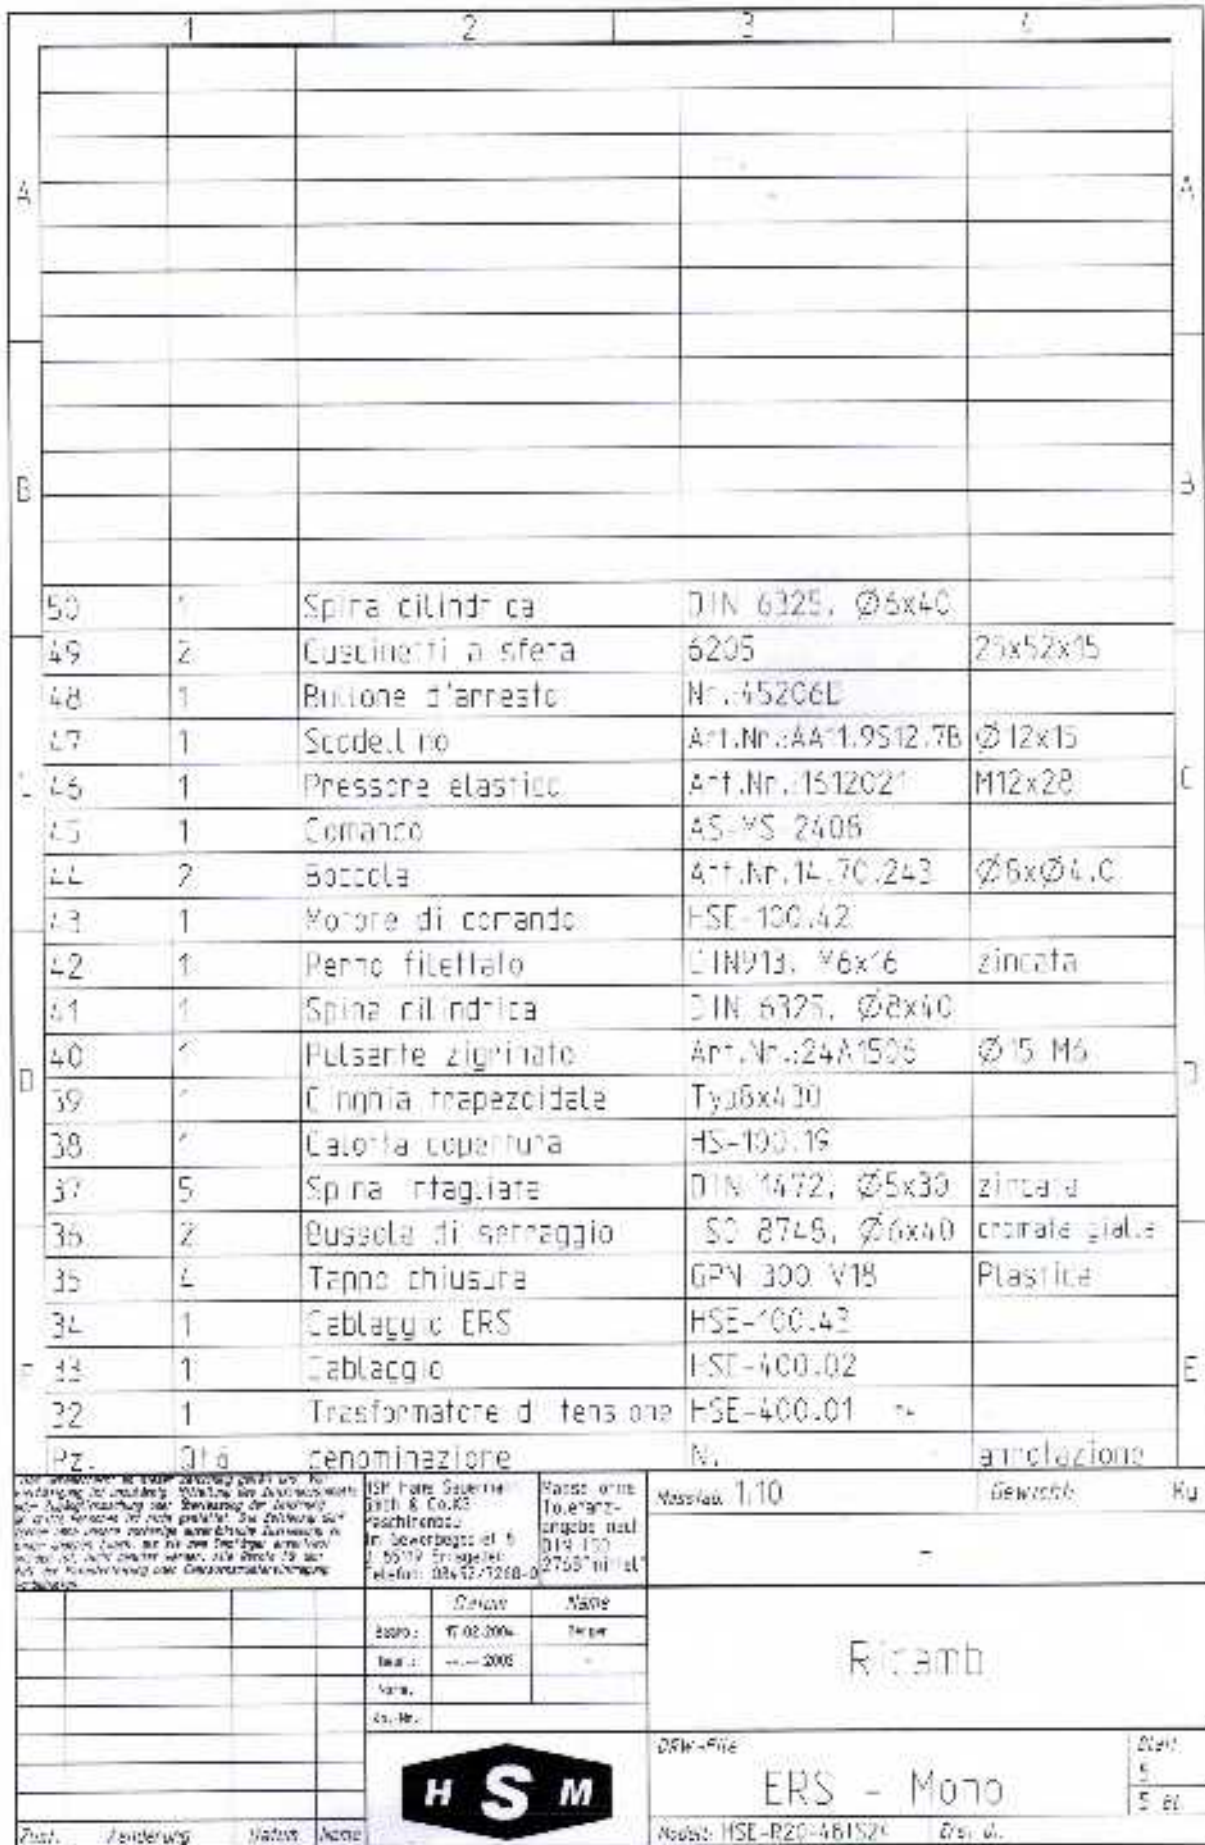 1 2 3 4
A A
B B
50 1 Spina cilindrica DIN 6325, Ø6x40
49 2 Cuscinetti a sfera 6205 25x52x15
48 1 Bullone d'arresto Nr.:45206D
47 1 Scodellino Art.Nr.:AA11.9S12.7B Ø12x15
C
46 1 Pressore elastico Art.Nr.:1512021 M12x28
45 1 Comando AS-MS 2408
44 2 Boccola Art.Nr.14.70.243 Ø8xØ4.0
43 1 Motore di comando HSE-100.42
42 1 Perno filettato DIN913, M6x16 zincata
41 1 Spina cilindrica DIN 6325, Ø8x40
40 1 Pulsante zigrinato Art.Nr.:24A1506 Ø15 M6
D D
39 1 Cinghia trapezoidale Typ6x430
38 1 Calotta copertura HS-100.19
37 5 Spina intagliata DIN 1472, Ø5x30 zincata
36 2 Bussola di serraggio ISO 8748, Ø6x40 cromata gialla
35 4 Tappo chiusura GPN 300 V18 Plastica
34 1 Cablaggio ERS HSE-100.43
33 1 Cablaggio HSE-400.02
E E
32 1 Trasformatore di tensione HSE-400.01
Pz. Qtà denominazione Nr. annotazione
GmbH & Co.KG
Maschinenbau
Masse ohne
Toleranz-
angabe nach
DIN ISO
2768"mittel"
Masstab: 1:10 Gewicht: Kg
-
Datum Name
Bearb.: 17.02.2004
--.-- 2002 -
Norm.
Ricambi
HSM
DRW-File
ERS - Mono
Blatt
5
5 Bl.
Zust. Aenderung Datum Name
Modell: